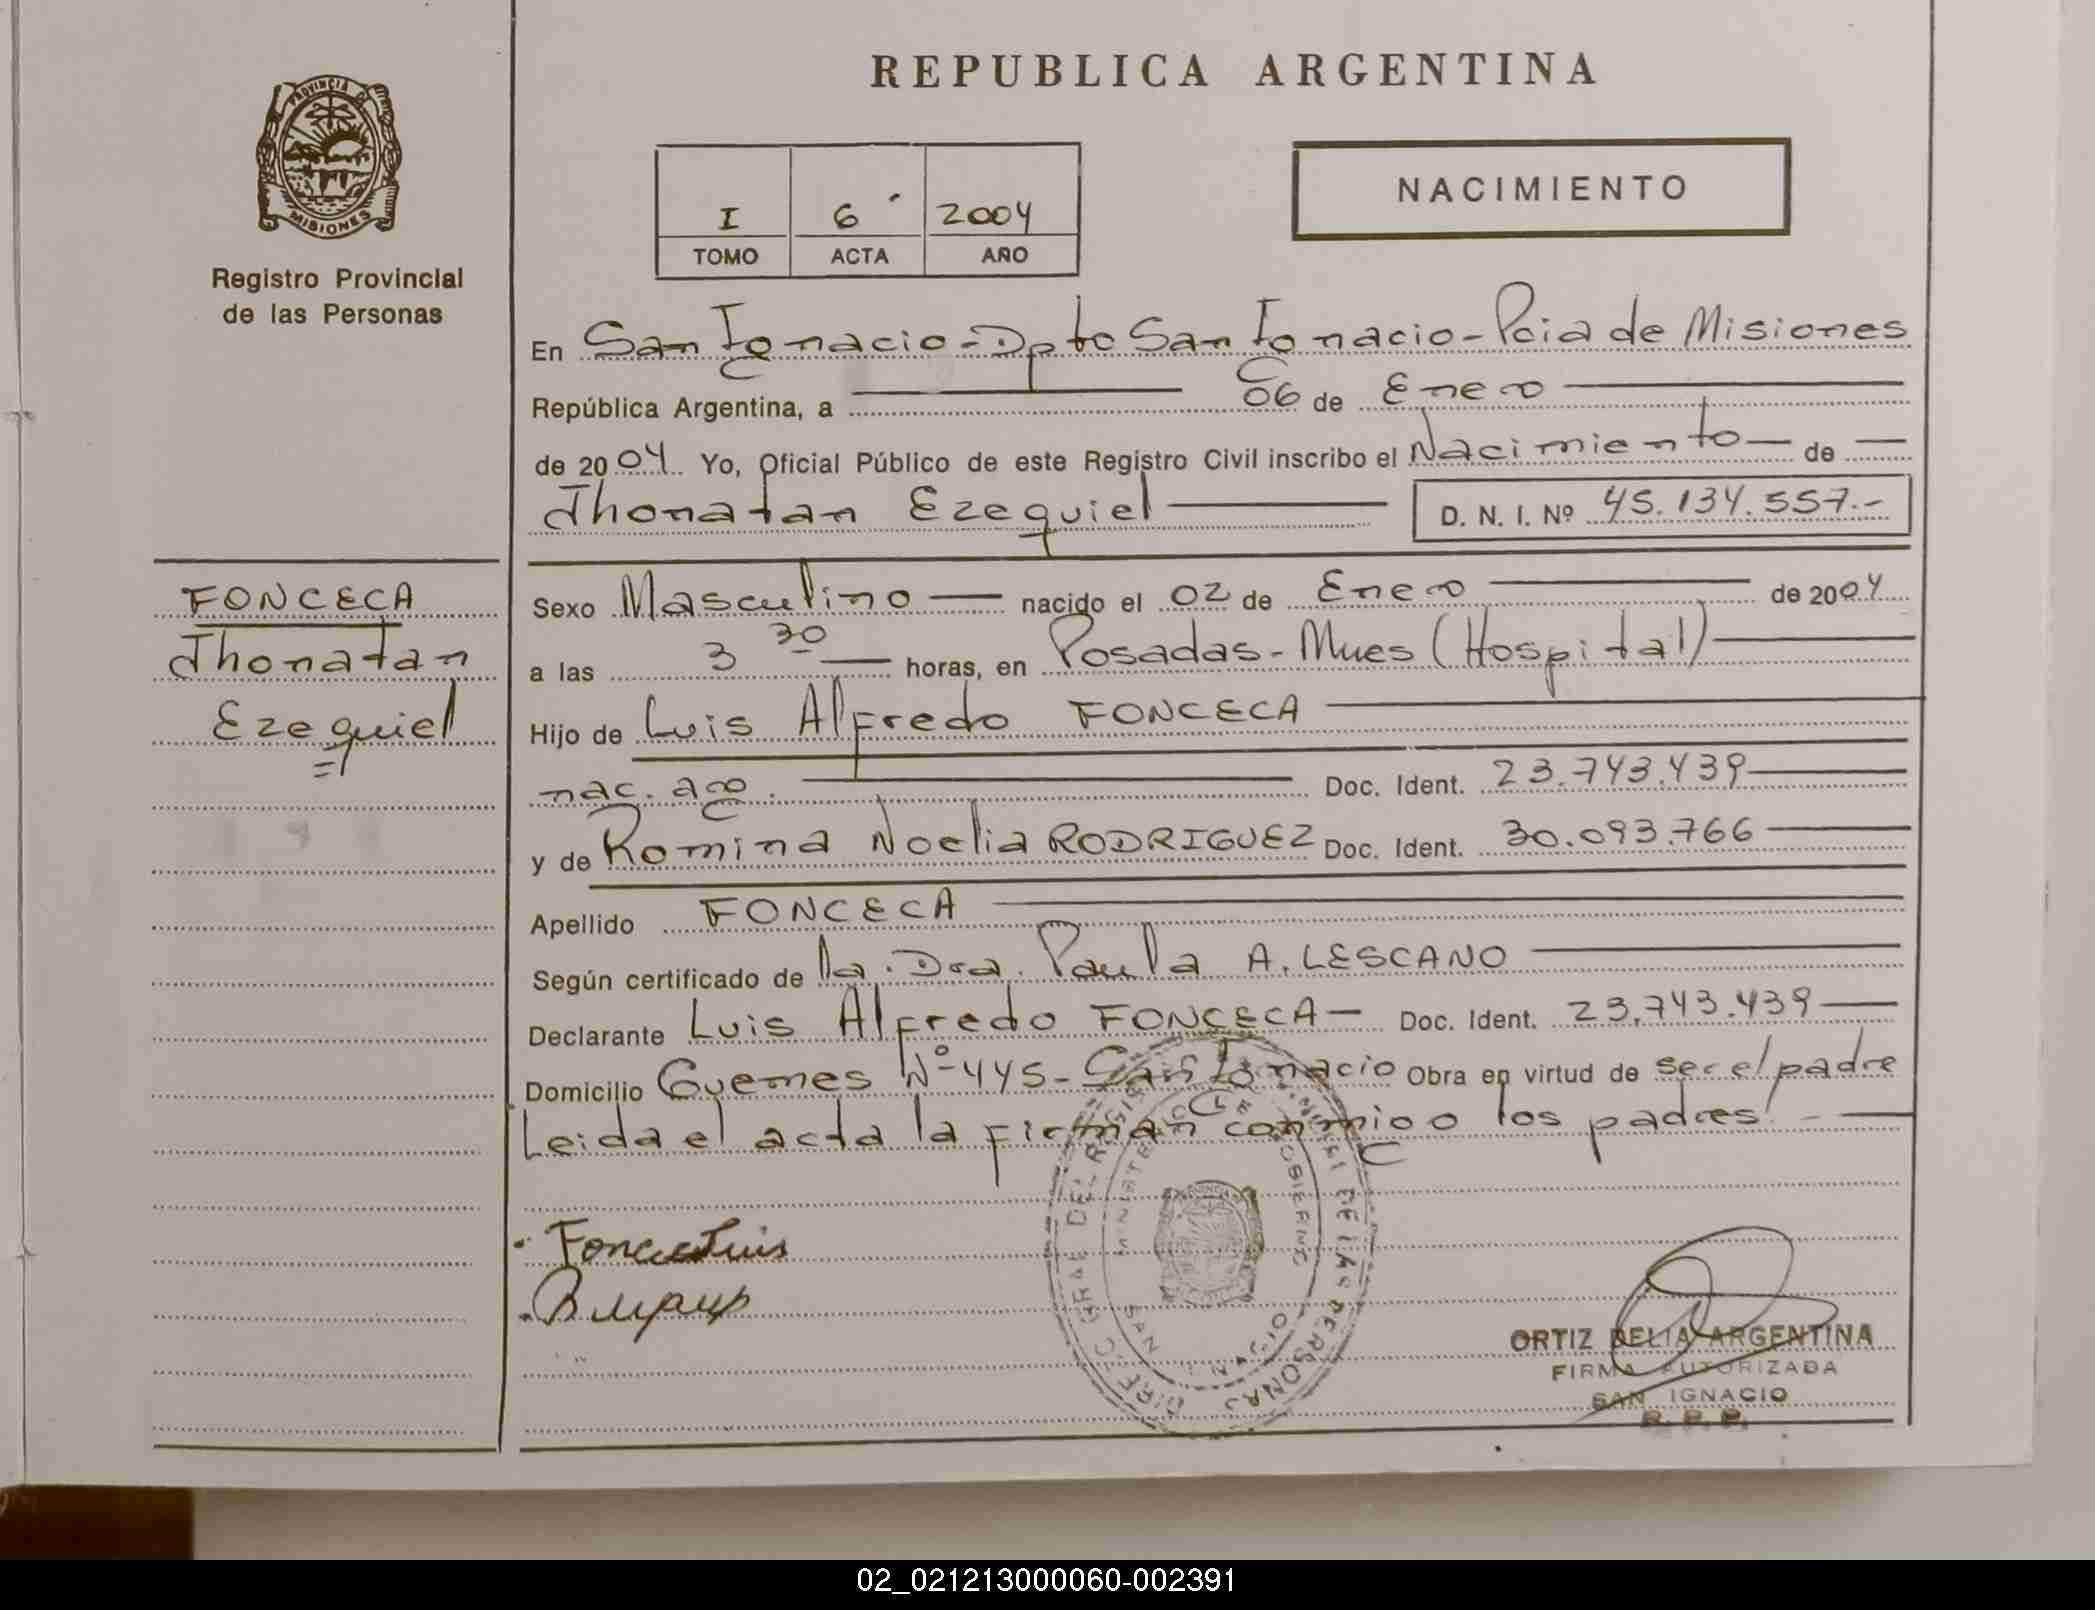 REPUBLICA ARGENTINA
PROVINCIA DE
MISIONES
Registro Provincial
de las Personas
I 6 2004
TOMO ACTA AÑO
NACIMIENTO
En San Ignacio - Dpto San Ignacio - Pcia de Misiones
República Argentina, a 06 de Enero
de 2004 Yo, Oficial Público de este Registro Civil inscribo el Nacimiento de
Jhonatan Ezequiel D. N. I. Nº 45.134.557.-
FONCECA
Jhonatan
Ezequiel
Sexo Masculino nacido el 02 de Enero de 2004
a las 3 30 horas, en Posadas - Mnes (Hospital)
Hijo de Luis Alfredo FONCECA
nac. arg. Doc. Ident. 23.743.439
y de Romina Noelia RODRIGUEZ Doc. Ident. 30.093.766
Apellido FONCECA
Según certificado de la Dra. Paula A. LESCANO
Declarante Luis Alfredo FONCECA - Doc. Ident. 23.743.439
Domicilio Guemes Nº 445 - San Ignacio Obra en virtud de ser el padre
Leida el acta la firman conmigo los padres. -
Fonceca Luis
ORTIZ DELIA ARGENTINA
FIRMA AUTORIZADA
SAN IGNACIO
R. P. P.
02_021213000060-002391